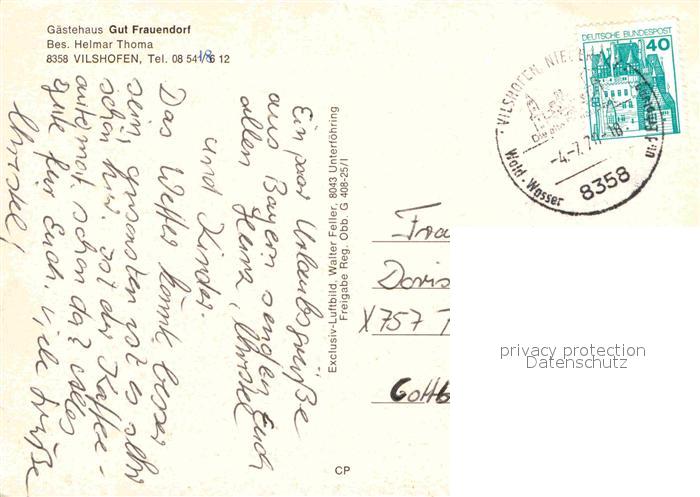 Gästehaus Gut Frauendorf
Bes. Helmar Thoma
8358 VILSHOFEN, Tel. 08 541/8 6 12
Ein paar Urlaubsgrüße
aus Bayern senden Euch
allen Heinz, Christel
und Kinder.
Das Wetter könnte besser
sein, ansonsten ist es sehr
schön hier. Ist der Kaffee-
automat schon da? Alles
gute für Euch. Viele Grüße
Christel,
Exclusiv-Luftbild, Walter Feller, 8043 Unterföhring
Freigabe Reg. Obb. G 408-25/1
CP
DEUTSCHE BUNDESPOST
40
VILSHOFEN, NIEDERB
Wald . Wasser
-4.-7.7
-18
8358
Frau
Doris
X757
Cottb
privacy protection
Datenschutz